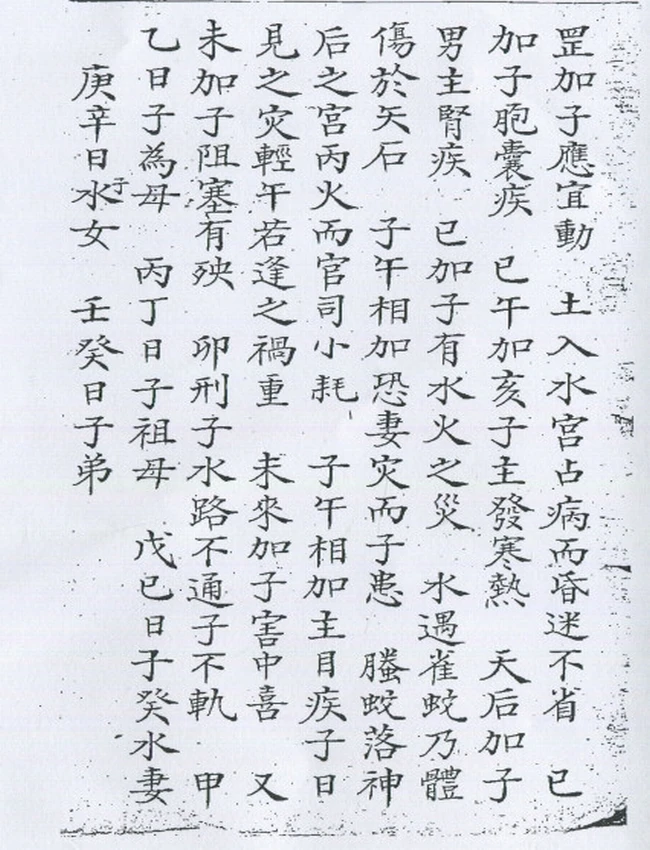 罡加子應宜動　土入水宮占病而昏迷不省　巳
加子胞囊疾　巳午加亥子主發寒熱　天后加子
男主腎疾　巳加子有水火之災　水遇雀蛟乃體
傷於矢石　子午相加恐妻灾而子患　螣蛟落神
后之宮丙火而官司小耗　子午相加主目疾子日
見之灾輕午若逢之禍重　未來加子害中喜　又
未加子阻塞有殃　卯刑子水路不通子不軌　甲
乙日子為母　丙丁日子祖母　戊己日子癸水妻
庚辛日水子女　壬癸日子弟